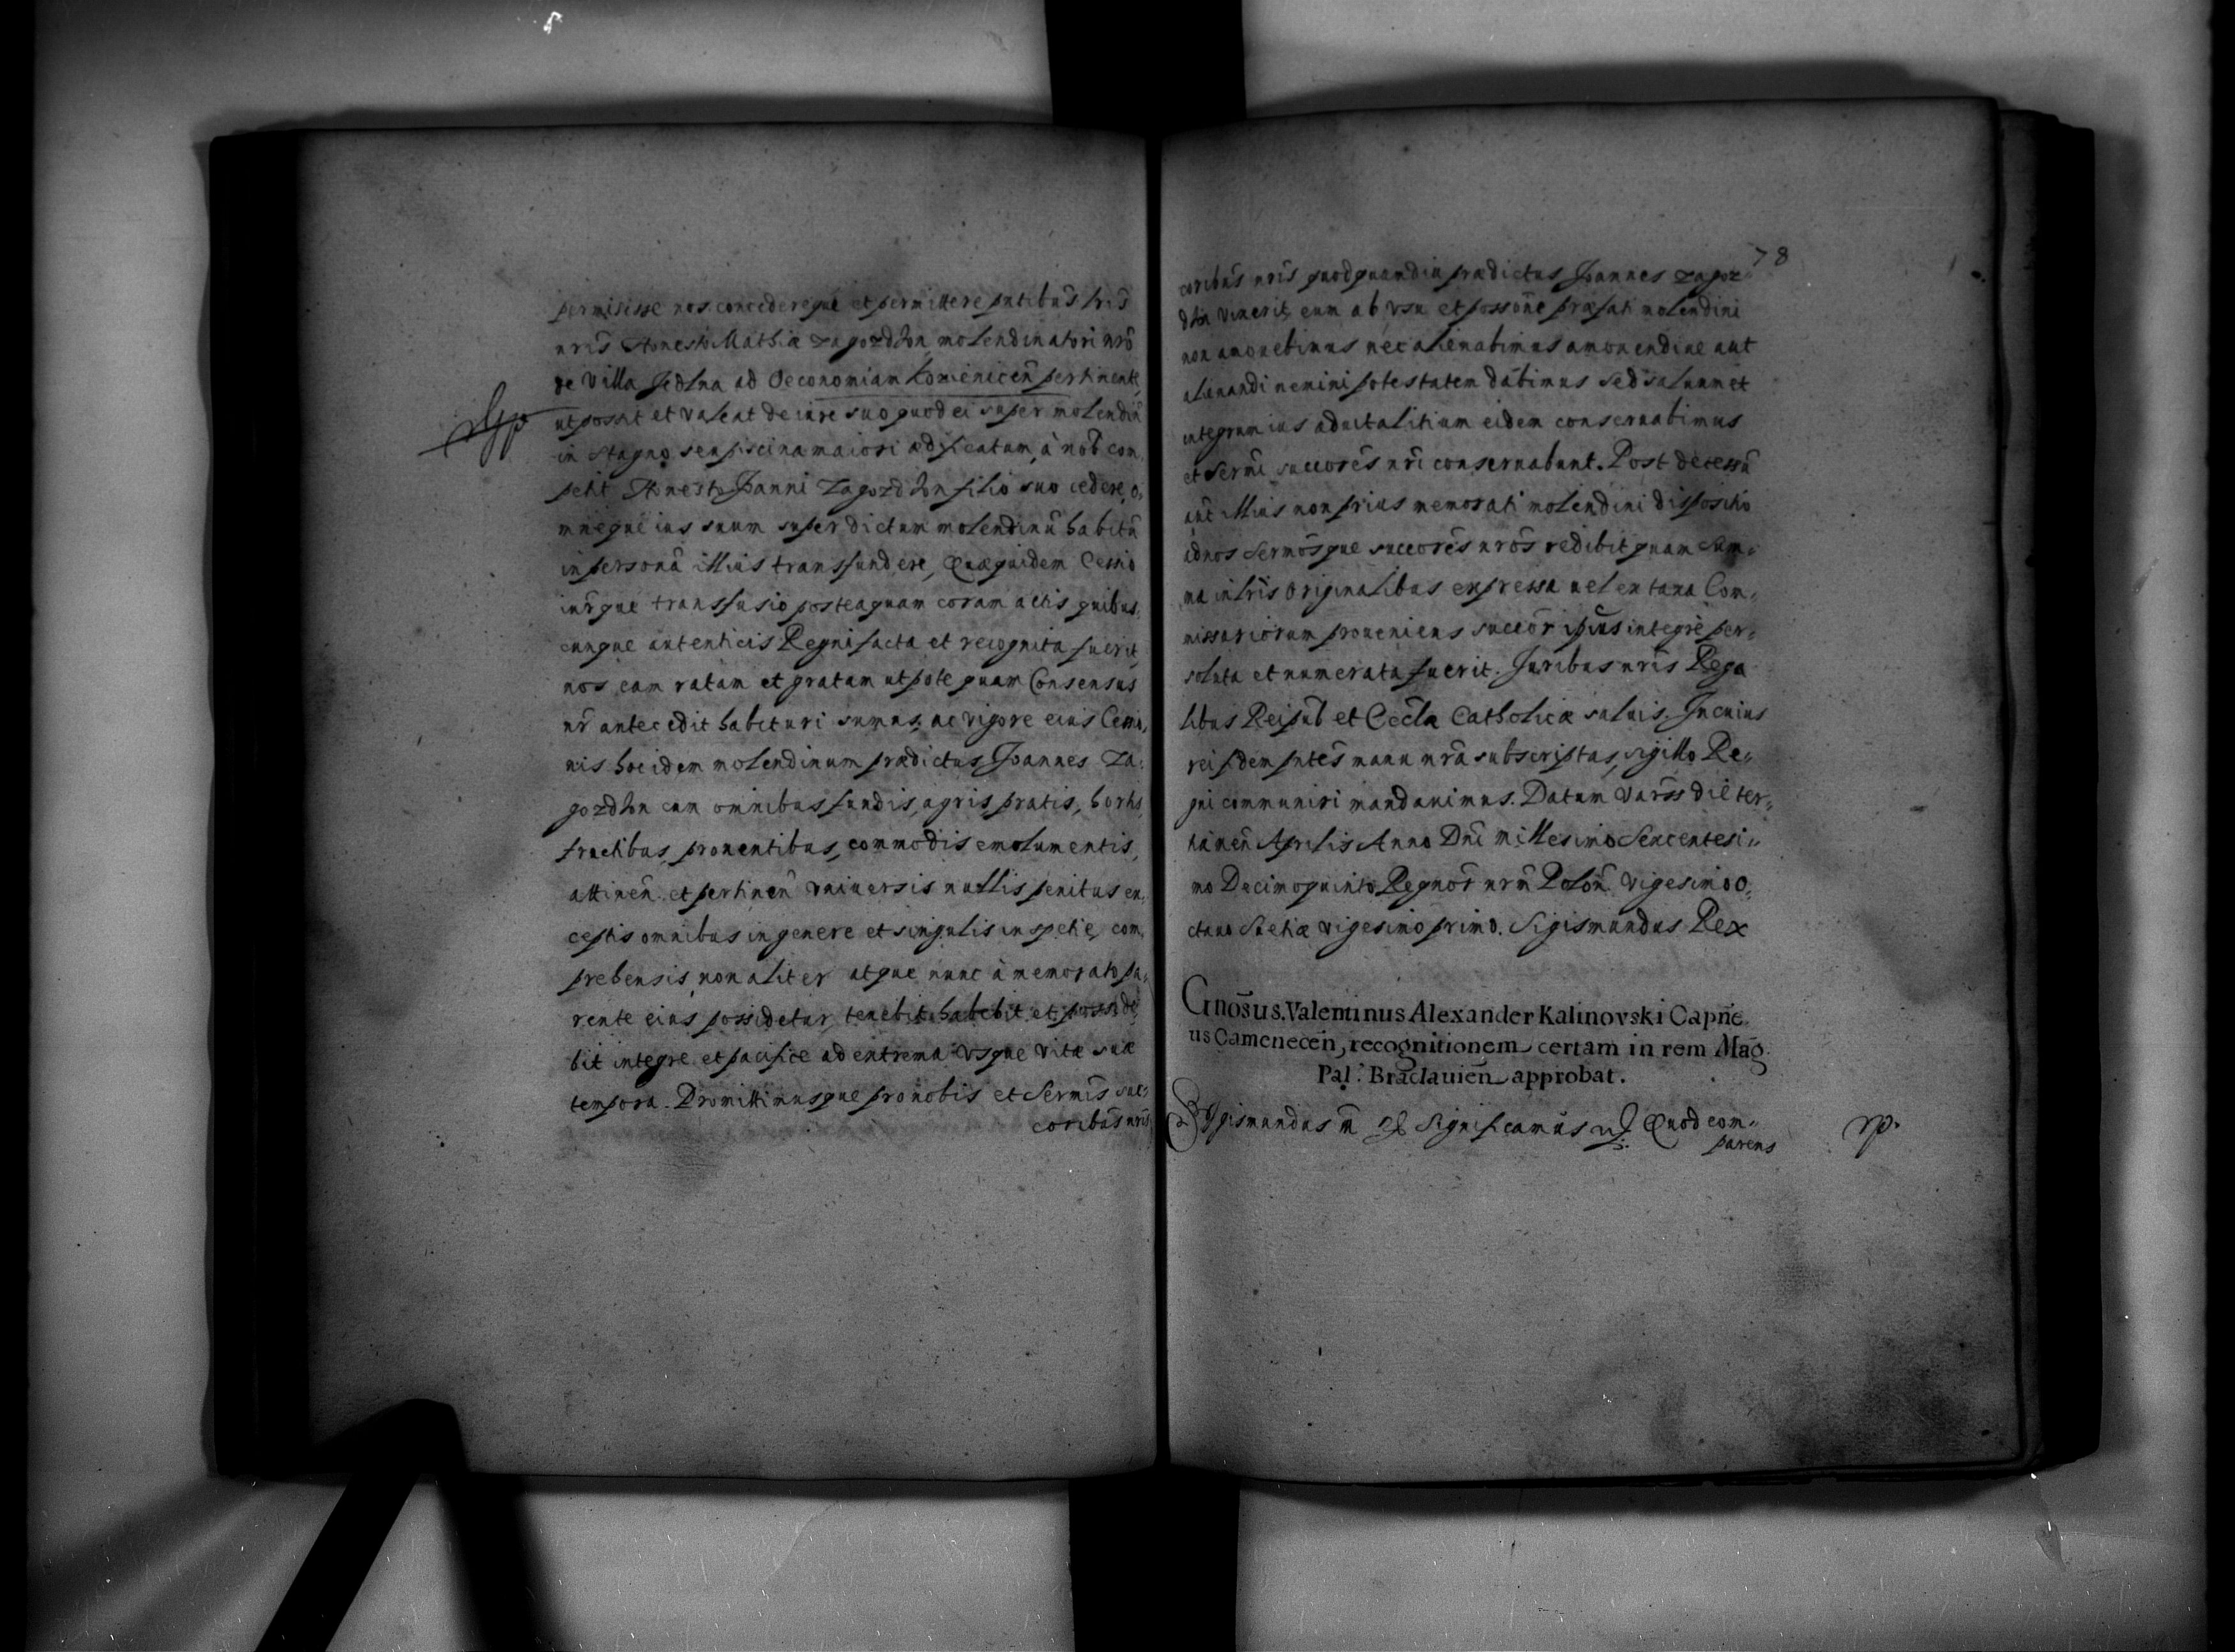 permisisse nos concedereque et permittere pntibus lris
nris Honesto Mathiæ Zagozdzon molendinatori nro
de Villa Jedlna ad Oeconomiam Kozienicen pertinente,
ut possit et valeat de iure suo quod ei super molendin
in stagno seu piscina maiori ædificatum, à nob com
petit Honesto Joanni Zagozdzon filio suo cedere, o,
mneque ius suum super dictum molendinu habitu
in persona illius transfundere, Quæquidem Cessio
iurque transfusio posteaquam coram actis quibus,
cunque autenticis Regni facta et recognita fuerit,
nos eam ratam et gratam utpote quam Consensus
nr antecedit habituri sumus, ac vigore eius Cessio,
nis hoc idem molendinum prædictus Joannes Za,
gozdzon cum omnibus fundis, agris, pratis, hortis,
fructibus, prouentibus, commodis emolumentis,
attinen et pertinen vniuersis nullis penitus ex,
ceptis omnibus in genere et singulis in spetie, com,
prehensis, non aliter atque nunc à memorato pa,
rente eius possidetur tenebit habebit et posside,
bit integre et pacifice ad extrema vsque vitæ suæ
tempora. Promittimusque pro nobis et Sermis suc,
coribus nris
78
coribus nris quodquamdiu prædictus Joannes Zagoz
dzon vixerit, eum ab vsu et possone præfati molendini
non amouebimus nec alienabimus amouendiue aut
alienandi nemini potestatem dabimus sed saluum et
integrum ius aduitalitium eidem conseruabimus
et Sermi succores nri conseruabunt. Post decessu
aut illius non prius memorati molendini dispositio
ad nos Sermosque succores nros redibit quam Sum,
ma in lris originalibus expressa uel ex taxa Com,
missariorum proueniens succor ipsius integrè per,
soluta et numerata fuerit. Juribus nris Rega
libus Reipub et Eccla Catholicæ saluis. In cuius
rei fidem pntes manu nra subscriptas, sigillo Re,
gni communiri mandauimus. Datum Varss die ter,
tia men Aprilis Anno Dni millesimo Sexcentesi,
mo Decimoquinto Regnor nrm Polon vigesimo o,
ctauo Suetiæ vigesimo primo. Sigismundus Rex
Gnosus Valentinus Alexander Kalinovski Capne
us Camenecen, recognitionem certam in rem Mag.
Pal: Braclauien approbat.
Sygismundus Significamus Quod com,
parens